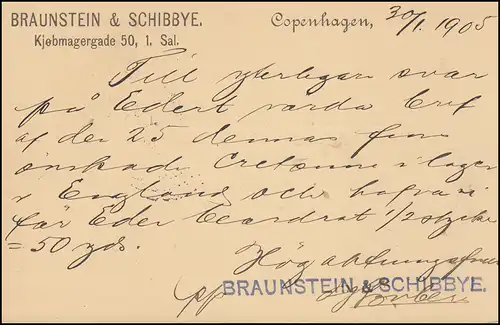 BRAUNSTEIN & SCHIBBYE.
Kjebmagergade 50, 1. Sal.
Copenhagen, 30/1. 1905
Till ytterligare svar
på Edert värda bref
af den 25 dennas finns
önskade Cretonne i lager
i England och hafva vi
för Eder beordrat 1/2 stycke
= 50 yds.
Högaktningsfullt
pp BRAUNSTEIN & SCHIBBYE.